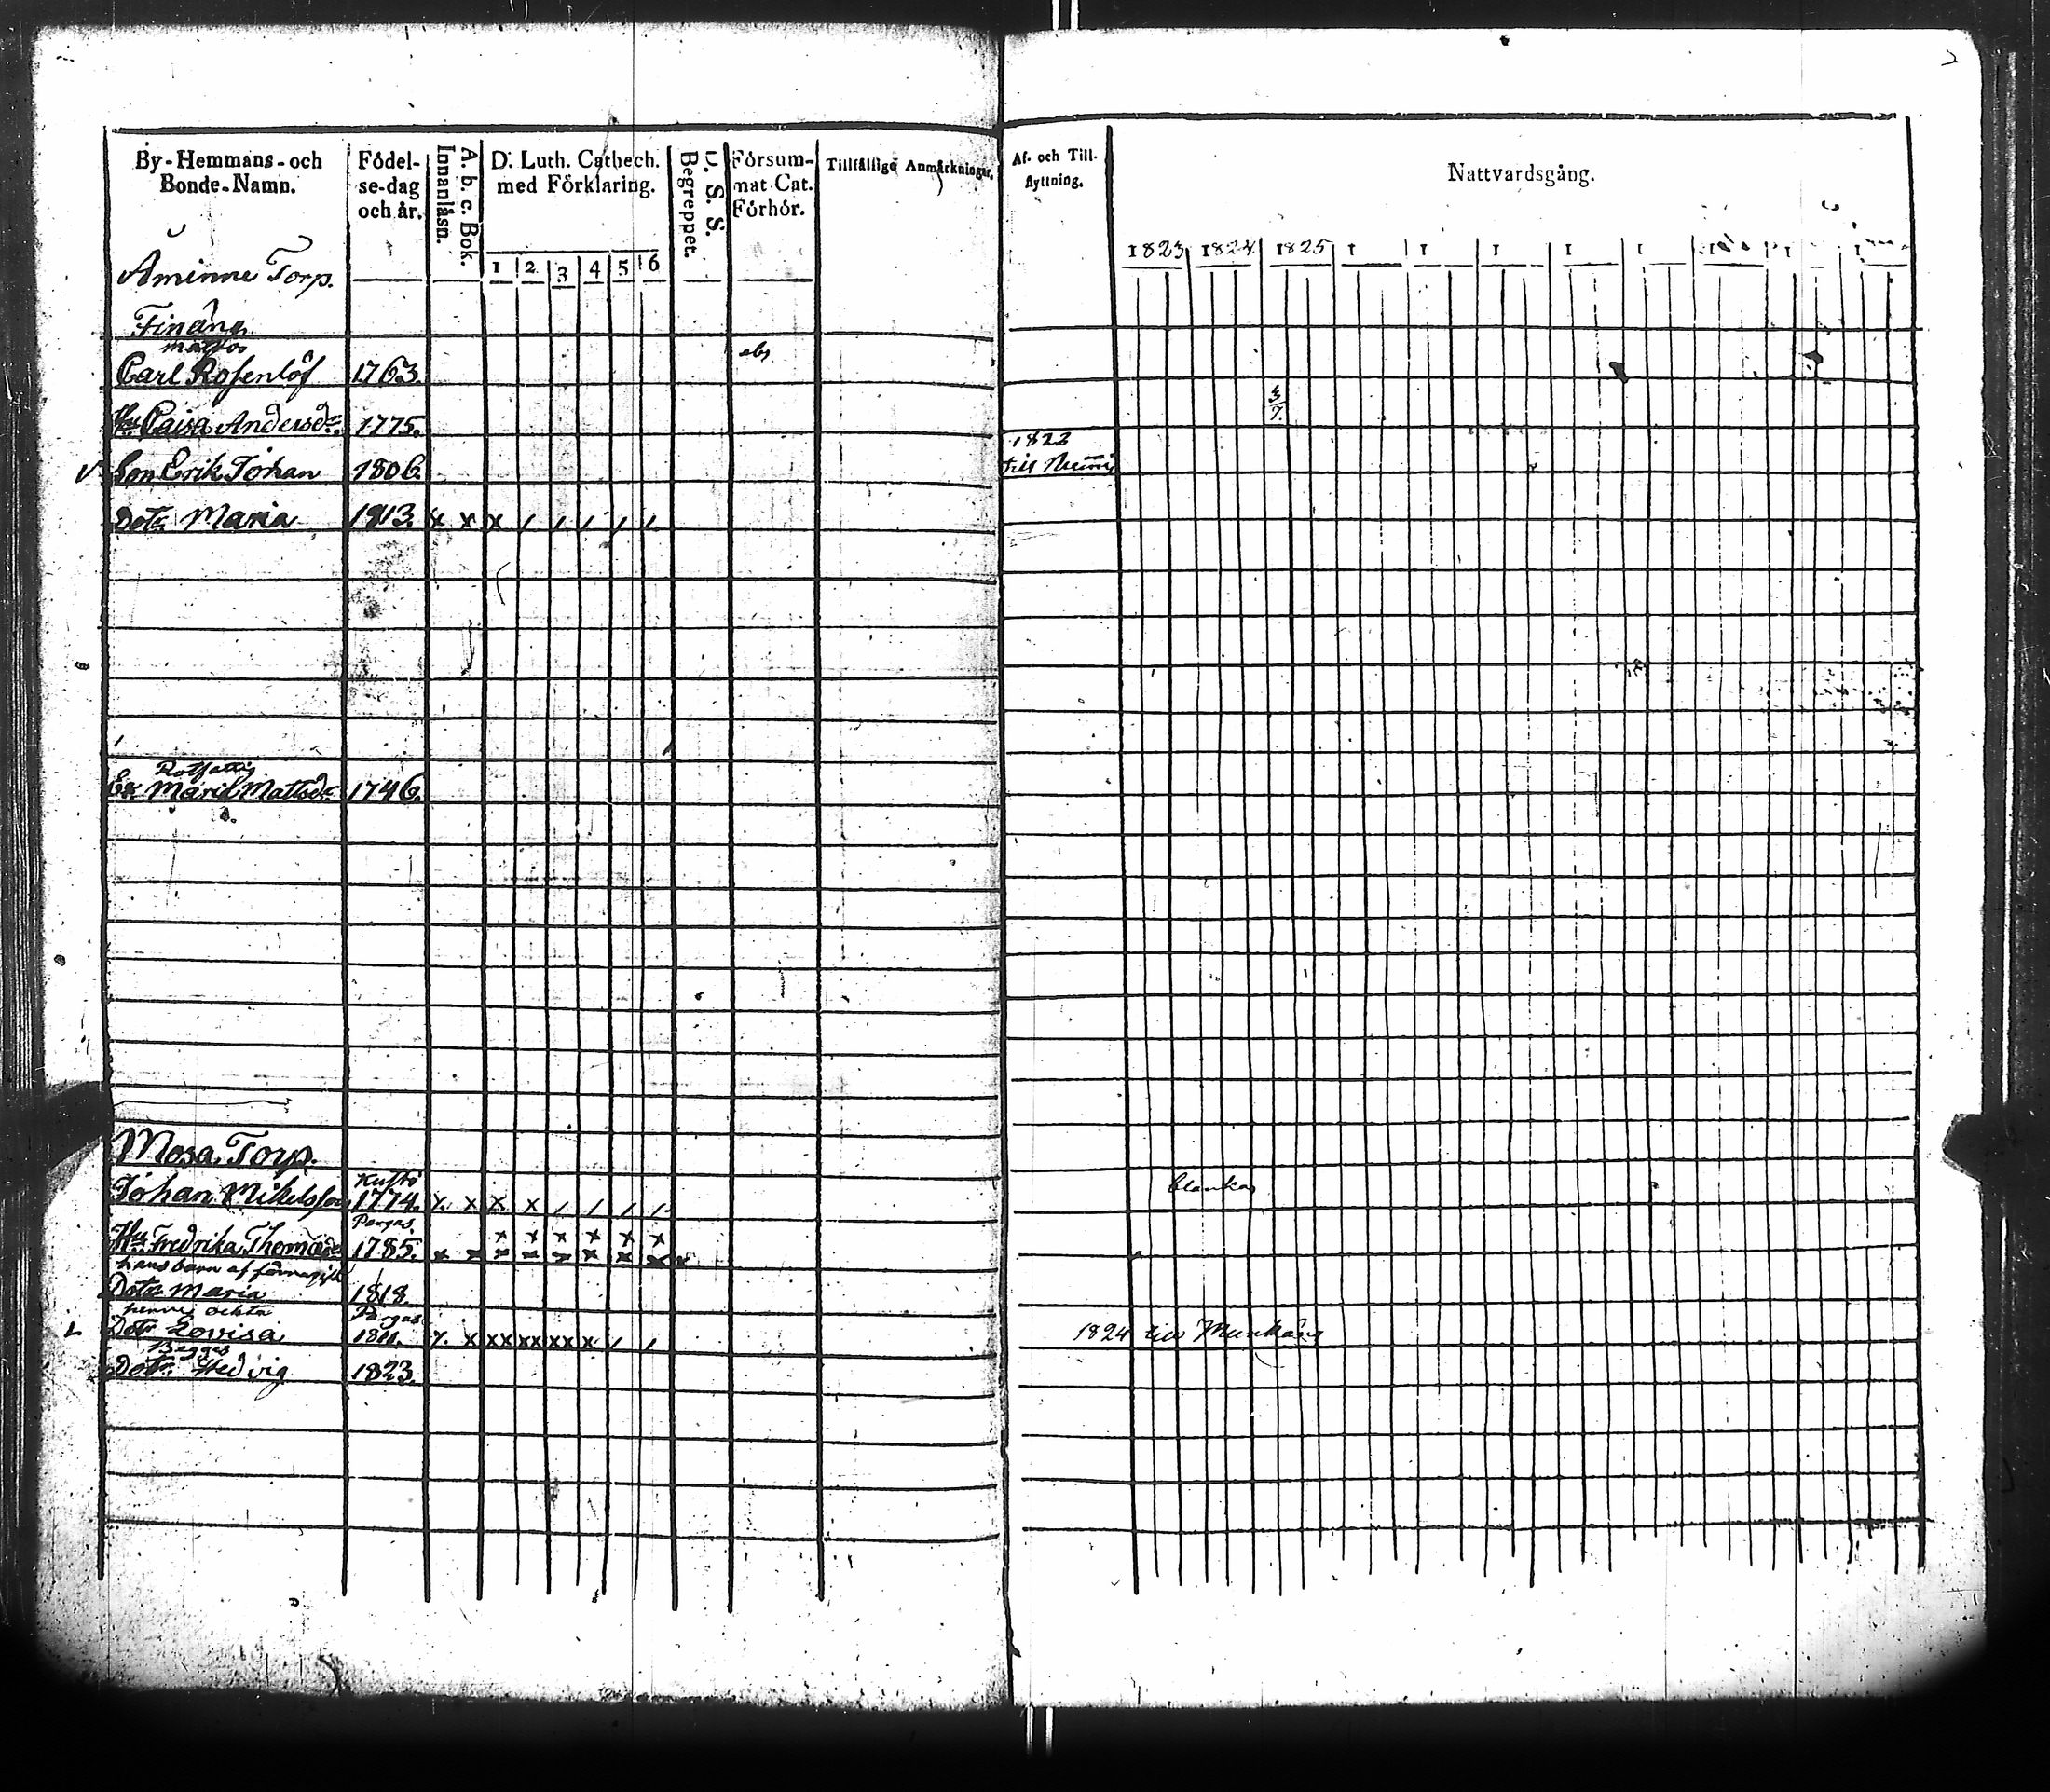 By-Hemmans-och Bonde-Namn.
Födel-se-dag och år.
A. b. c. Bok.
Innanläsn.
D. Luth. Cathech. med Förklaring.
1 2 3 4 5 6
D. S. S.
Begreppet.
Försum-mat Cat. Förhör.
Tillfällige Anmärkningar.
Af- och Till-flyttning.
Nattvardsgång.
1823 1824 1825 1 1 1 1 1 1 1 1
Åminne Torp.
Finäng
Carl Rosenlöf 1763.
Hu Caisa Andersdr. 1775. 3/7.
1822
Son Erik Johan 1806. till
Dotr Maria 1813. x x x / / / / /
Rotfattig
Maria Mattsdr 1746.
Mosa Torp.
Kustö
Johan Mikelsson 1774. x x x x / / / /
Pargas
x x x x x x
Hu Fredrika Thomasdr 1785. x x x x x x x x x
hans barn af förra gift
Dotr Maria 1818.
hennes oekta Pargas
Dotr Lovisa 1811. x xx xx xx x / / 1824 till
Begges
Dotr Hedvig 1823.